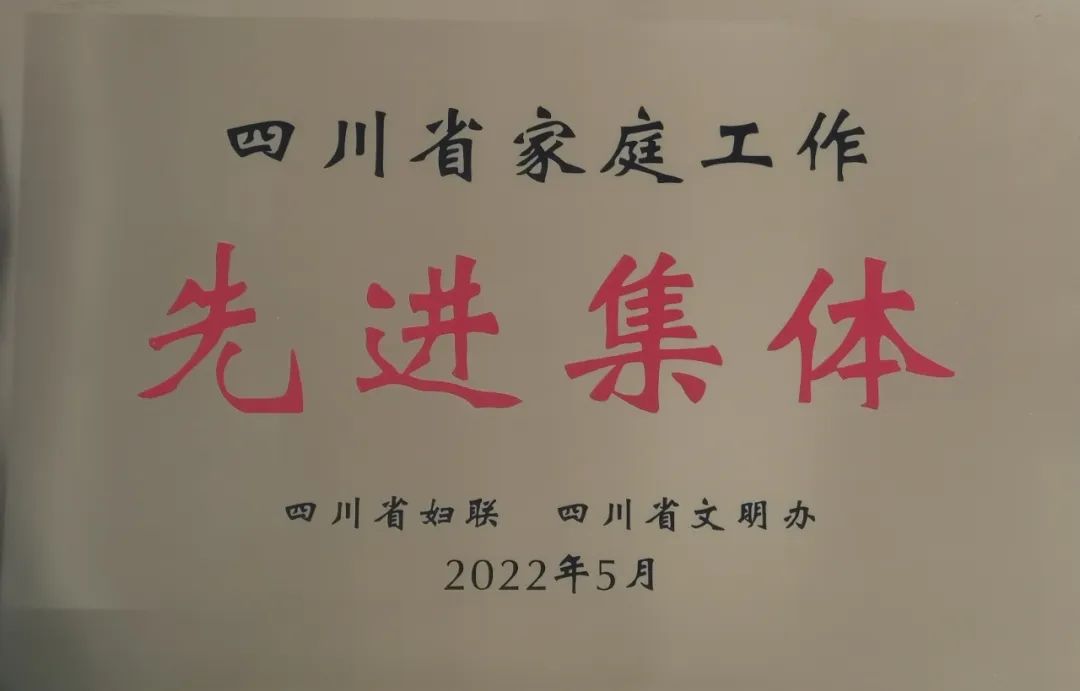 四川省家庭工作
先进集体
四川省妇联 四川省文明办
2022年5月